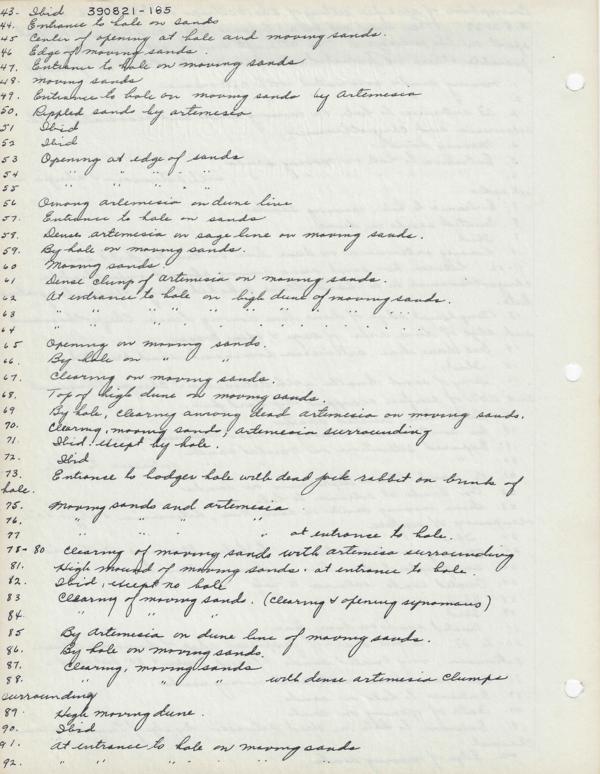 43. Ibid 390821-185
44. Entrance to hole on sands
45 Center of opening at hole and moving sands.
46 Edge of moving sands.
47. Entrance to hole on moving sands
48. Moving sands
49. Entrance to hole on moving sands by Artemesia
50. Rippled sands by artemesia
51 Ibid
52 Ibid
53 Opening at edge of sands
54 " " " " "
55 " " " " "
56 Among artemesia on dune line
57. Entrance to hole on sands
58. Dense artemesia on sage line on moving sands.
59. By hole on moving sands.
60 Moving sands.
61 Dense clump of artemesia on moving sands.
62 At entrance to hole on high dune of moving sands.
63 " " " " " " " " " "
64 " " " " " " " " " "
65 Opening on moving sands.
66. By hole on " "
67. Clearing on moving sands.
68. Top of high dune on moving sands.
69 By hole, clearing among dead artemesia on moving sands.
70. Clearing, moving sands, artemesia surrounding
71. Ibid. except by hole.
72. Ibid
73. Entrance to badger hole with dead jack rabbit on brink of
hole.
75. Moving sands and artemesia
76. " " " "
77 " " " " at entrance to hole.
78-80 Clearing of moving sands with artemisa surrounding
81. High mound of moving sands. at entrance to hole.
82. Ibid, except no hole
83 Clearing of moving sands. (clearing & opening synomous)
84. " " " "
85 By Artemesia on dune line of moving sands.
86. By hole on moving sands.
87. Clearing, moving sands
88. " " " with dense artemesia clumps
surrounding
89. High moving dune.
90. Ibid
91. At entrance to hole on moving sands
92. " " " " " "